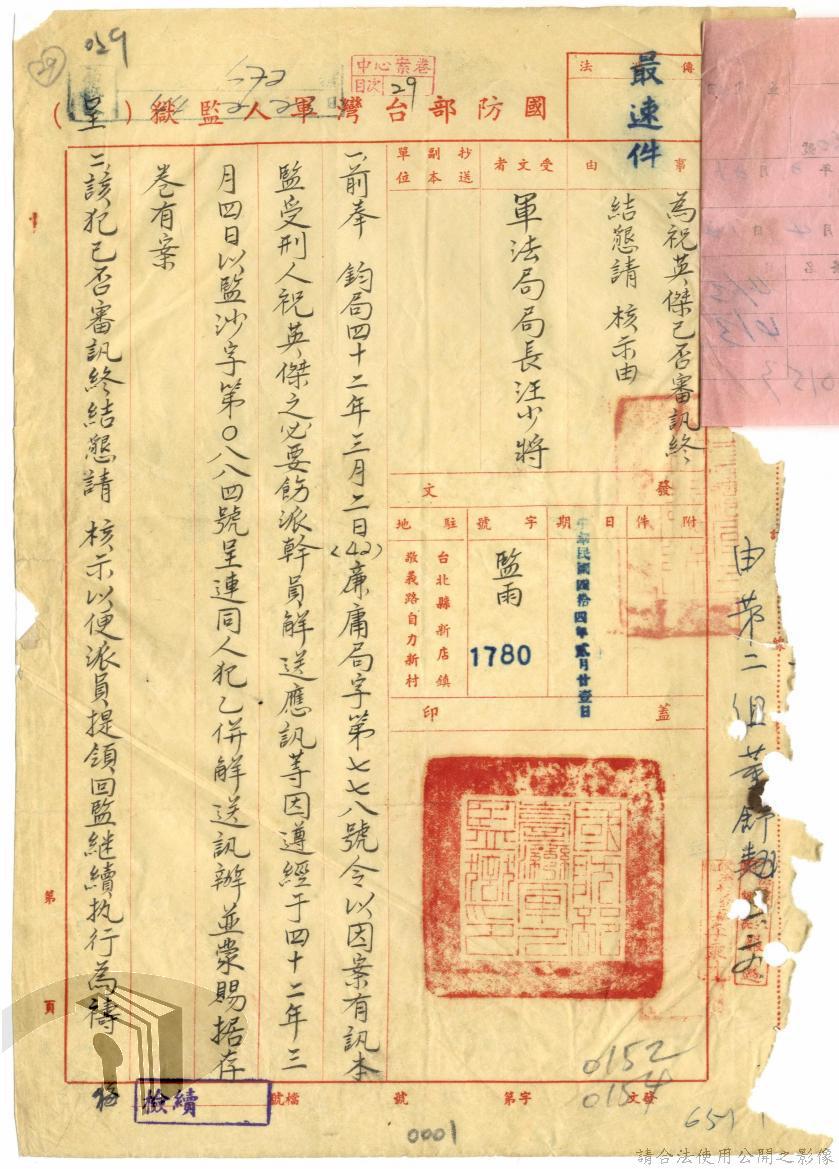 029
29
中心案卷
目次 29
國防部台灣軍人監獄（呈）
傳 法
最速件
事由
為祝英傑已否審訊終
結懇請 核示由
受文者
軍法局局長汪少將
抄送
副本
單位
發文
附件
日期
中華民國四拾四年貳月廿壹日
字號
監雨
1780
駐地
台北縣新店鎮
敬義路自力新村
蓋印
國防部
臺灣軍人
監獄印
一、前奉 鈞局四十二年三月二日(42)廉庸局字第七七八號令以因案有訊本
監受刑人祝英傑之必要飭派幹員解送應訊等因遵經于四十二年三
月四日以監沙字第〇八八四號呈連同人犯乙併解送訊辦並蒙賜据存
卷有案
二、該犯已否審訊終結懇請 核示以便派員提領回監継續执行為禱
由第二組
第
頁
0152
0154
651
發文 字第 號 檔號
檢續
0001
請合法使用公開之影像